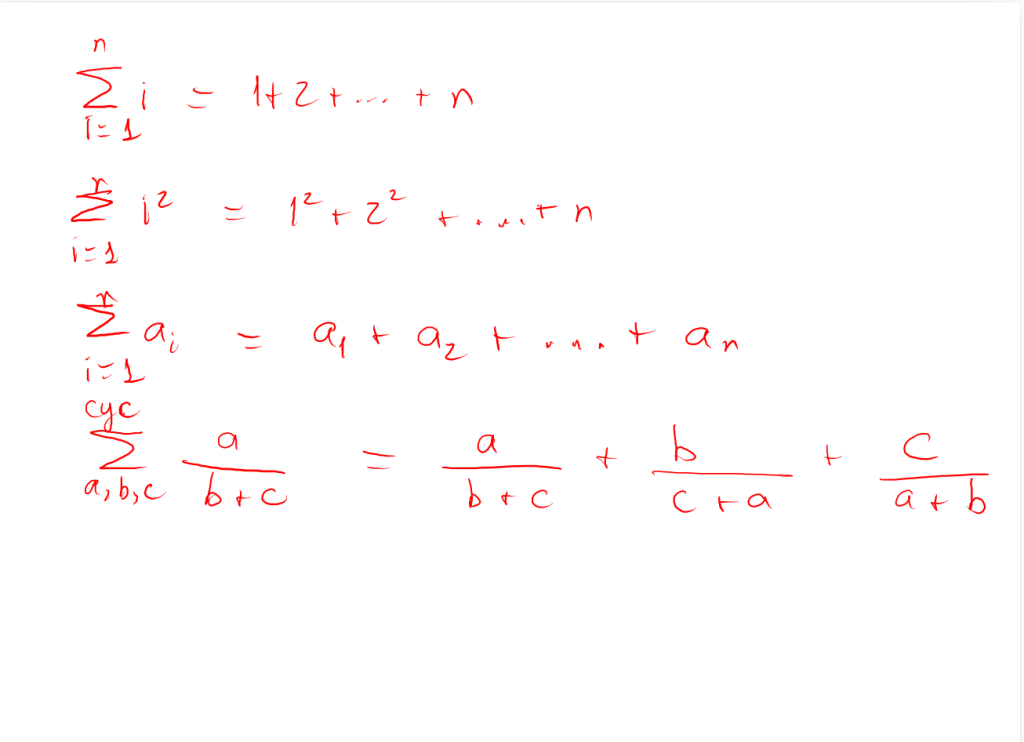 $\sum_{i=1}^{n} i = 1+2+\dots+n$
$\sum_{i=1}^{n} i^2 = 1^2+2^2+\dots+n$
$\sum_{i=1}^{n} a_i = a_1+a_2+\dots+a_n$
$\sum_{a,b,c}^{cyc} \frac{a}{b+c} = \frac{a}{b+c} + \frac{b}{c+a} + \frac{c}{a+b}$